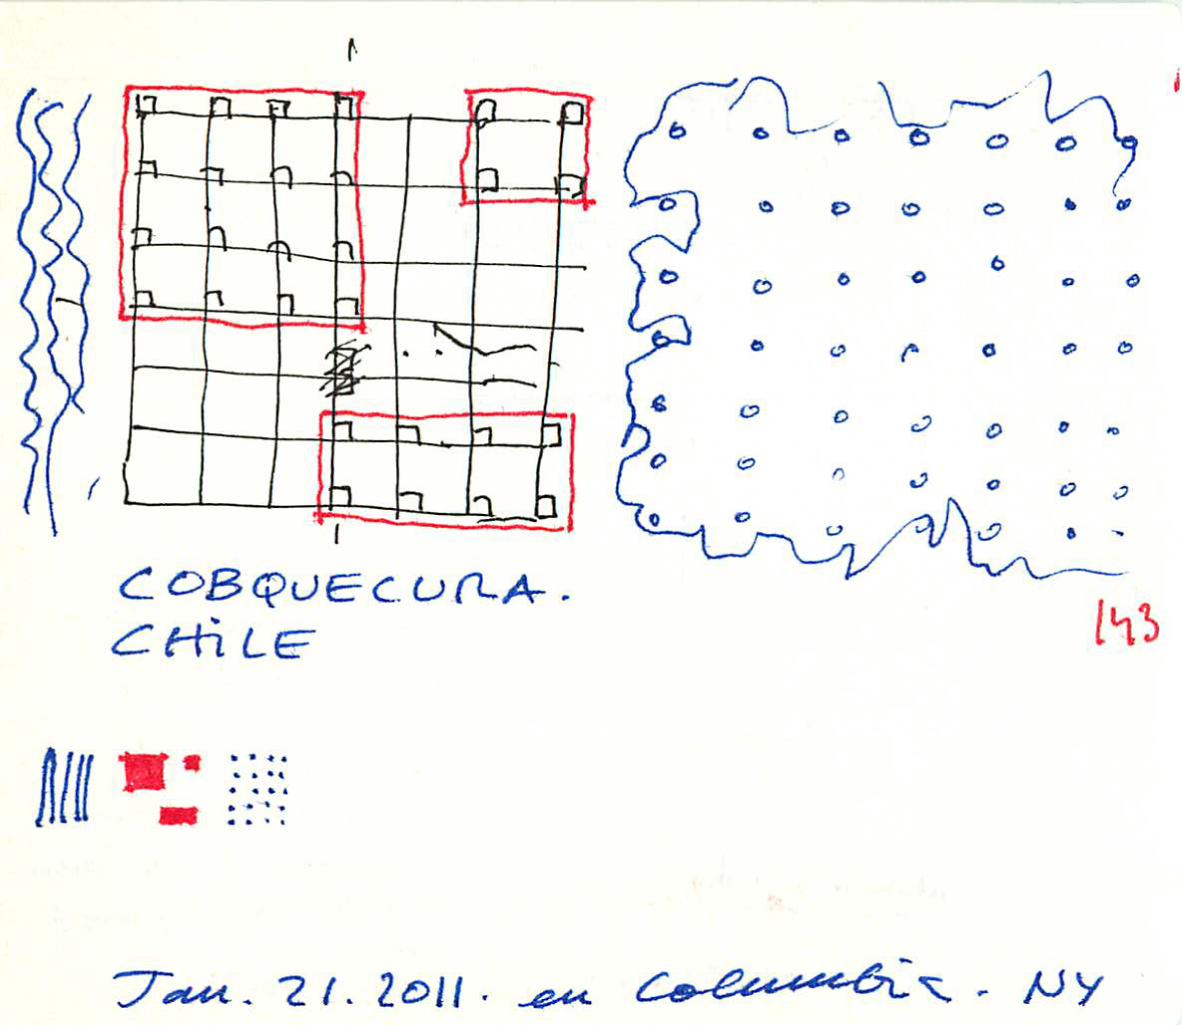 COBQUECURA.
CHiLE
143
Jan. 21. 2011. en Columbia. NY